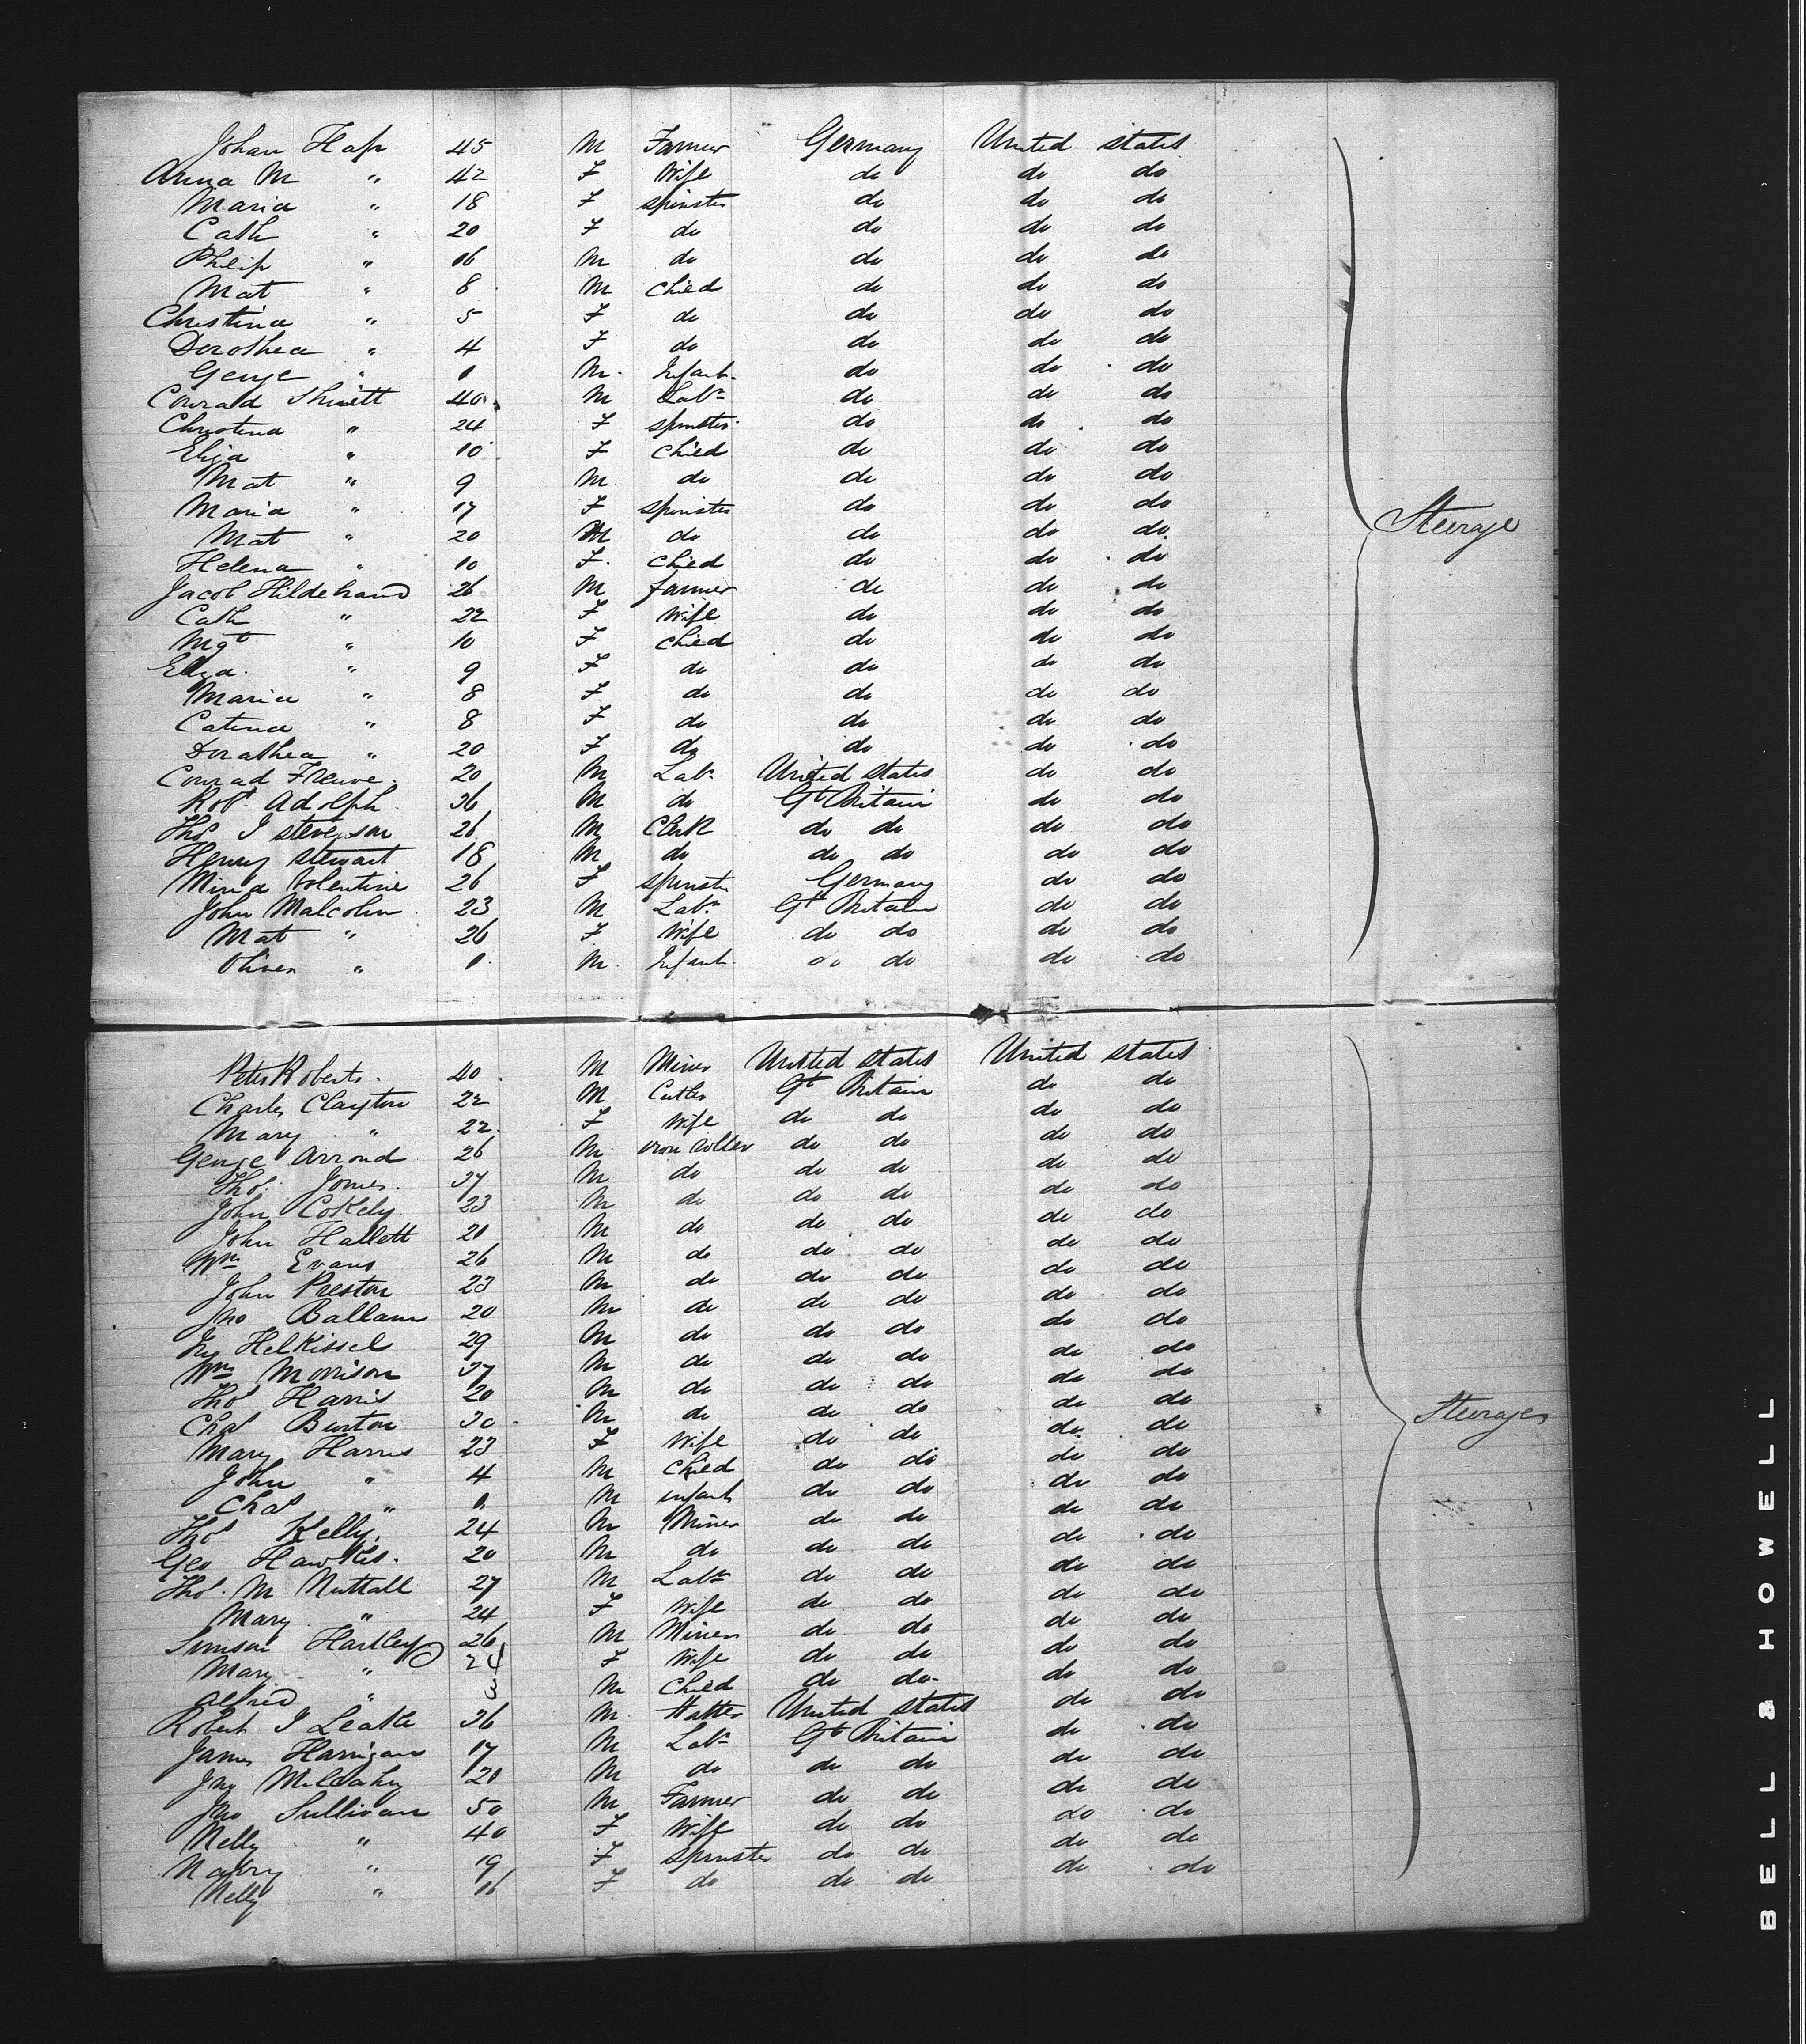 Johan Hap 45 M Farmer Germany United states
Anna M " 42 F Wife do do do
Maria " 18 F spinster do do do
Cath " 20 F do do do do
Philip " 16 M do do do do
Mat " 8 M child do do do
Christina " 5 F do do do do
Dorothea " 4 F do do do do
George " 1 M Infant do do do
Conrad 40 M Labr do do do
Christina " 24 F spinster do do do
Eliza " 10 F child do do do
Mat " 9 M do do do do
Maria " 17 F spinster do do do
Mat " 20 M do do do do
Steerage
Helena " 10 F child do do do
Jacob Hildebrand 26 M farmer do do do
Cath " 22 F Wife do do do
Mgt " 10 F child do do do
Eliza " 9 F do do do do
Maria " 8 F do do do do
Catina " 8 F do do do do
Dorathea " 20 F do do do do
Conrad 20 M Labr United states do do
Robt Adolph 36 M do Gt Britain do do
Thos J stevenson 26 M Clerk do do do do
Henry stewart 18 M do do do do do
Mina Valentine 26 F spinster Germany do do
John Malcolm 23 M Labr Gt Britain do do
Mat " 26 F Wife do do do do
Oliver " 1 M Infant do do do do
Peter Roberts 40 M Miner United states United states
Charles Clayton 22 M Cutler Gt Britain do do
Mary " 22 F Wife do do do do
George Arrond 26 M iron roller do do do do
Thos Jones 37 M do do do do do
John Cokely 23 M do do do do do
John Hallett 21 M do do do do do
Wm Evans 26 M do do do do do
John Preston 23 M do do do do do
Jno Ballam 20 M do do do do do
Helkissel 29 M do do do do do
Wm Morrison 37 M do do do do do
Thos Harris 20 M do do do do do
Chas Burton 30 M do do do do do
Steerage
Mary Harris 23 F Wife do do do do
John " 4 M child do do do do
Chas " 1 M infant do do do do
Thos Kelly 24 M Miner do do do do
Geo Hawkes 20 M do do do do do
Thos M Nuttall 27 M Labr do do do do
Mary " 24 F Wife do do do do
Simson Hartley 26 M Miner do do do do
Mary " 24 F Wife do do do do
Alfred " M child do do do do
Robert J Leake 36 M Hatter United states do do
James Harrigan 17 M Labr Gt Britain do do
Jno Mulcahy 21 M do do do do do
Jno Sullivan 50 M Farmer do do do do
Nelly " 40 F Wife do do do do
" 19 F spinster do do do do
Nelly " 16 F do do do do do
BELL & HOWELL